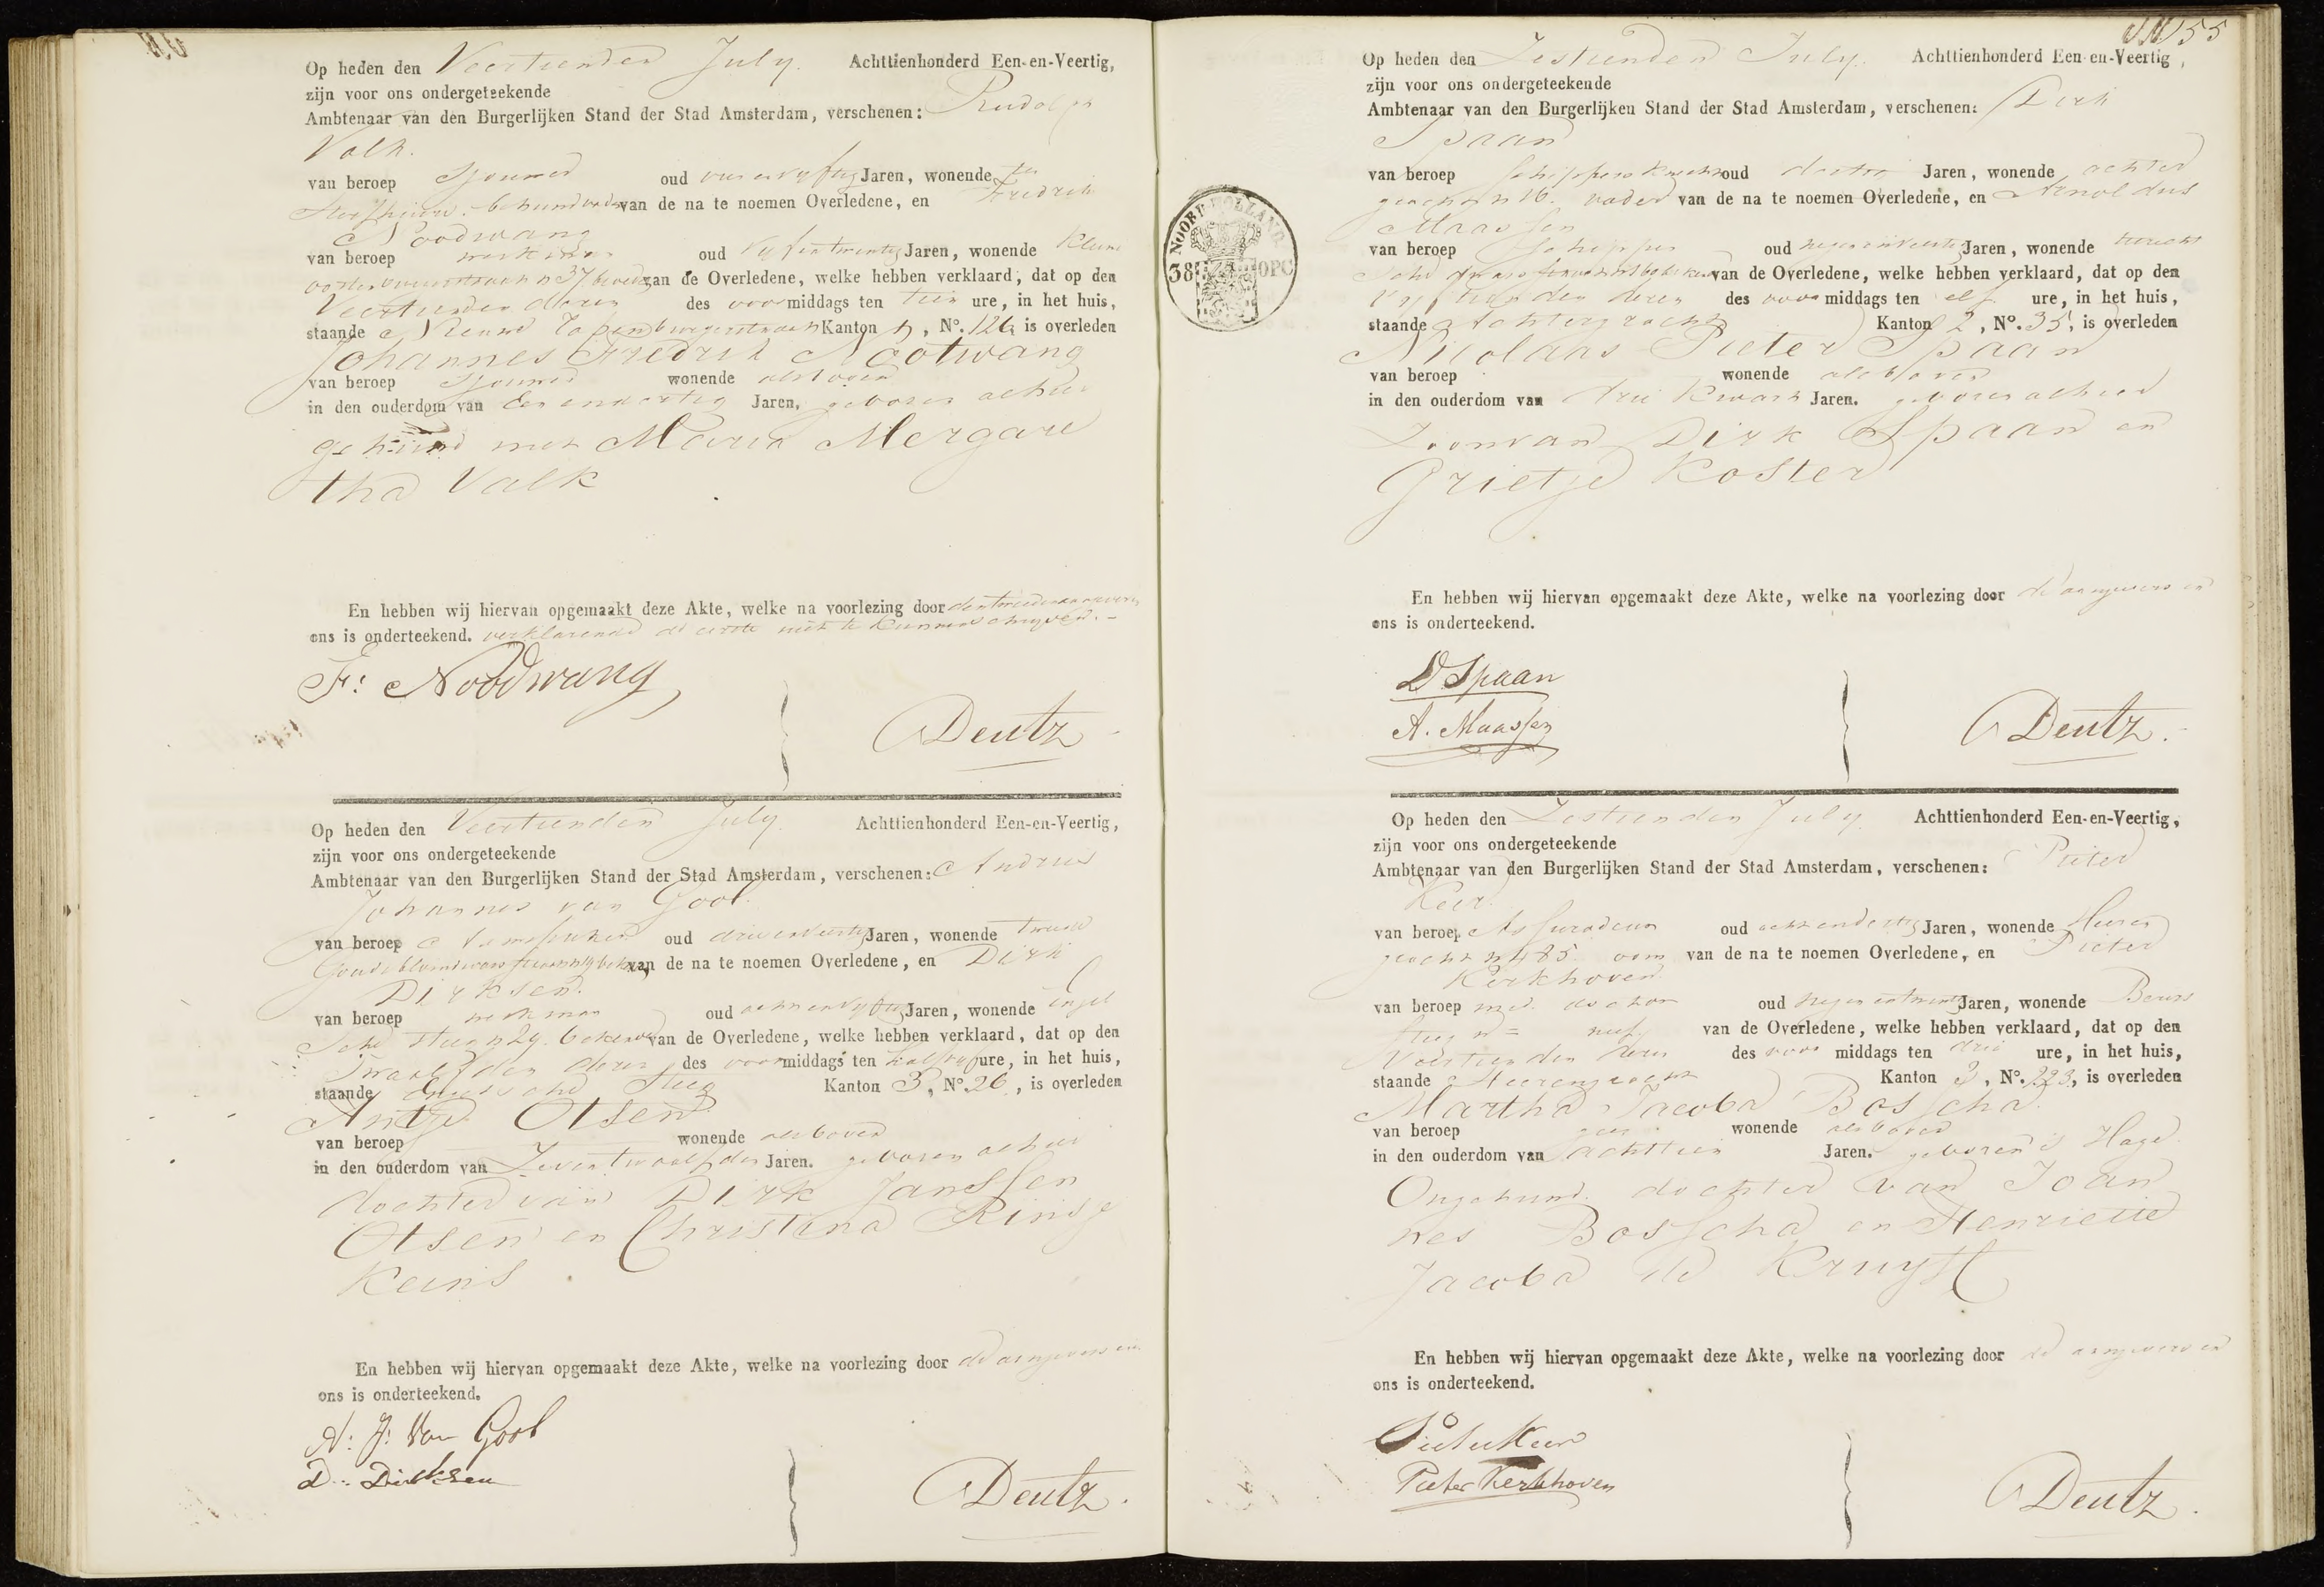 Op heden den Veertienden July. Achttienhonderd Een-en-Veertig,
zijn voor ons ondergeteekende
Ambtenaar van den Burgerlijken Stand der Stad Amsterdam, verschenen: Rudolph
Valk.
van beroep Sjouwer oud vier en vyftig Jaren, wonende
behuwdvader van de na te noemen Overledene, en Fredrik
Noodwang
van beroep werkman oud vyf en twintig Jaren, wonende Kleine
No 37 broeder van de Overledene, welke hebben verklaard, dat op den
Veertienden dezer des voormiddags ten tien ure, in het huis,
staande Nieuwe Uilenburgerstraat Kanton , No. 126 is overleden
Johannes Fredrik Nootwang
van beroep Sjouwer wonende als boven
in den ouderdom van Een en dertig Jaren, geboren alhier
gehuwd met Maria Mergare
tha Valk
En hebben wij hiervan opgemaakt deze Akte, welke na voorlezing door den tweede aangever en
ons is onderteekend. verklarende de eerste niet te kunnen schryven.
F: Noodwang
Deutz
Op heden den Veertienden July Achttienhonderd Een-en-Veertig,
zijn voor ons ondergeteekende
Ambtenaar van den Burgerlijken Stand der Stad Amsterdam, verschenen: Andries
Johannes van Gool.
van beroep oud drie en veertig Jaren, wonende Tweede
Goudsbloemdwarsstraat bekende van de na te noemen Overledene, en Dirk
Dirksen.
van beroep werkman oud acht en vyftig Jaren, wonende Engel
sche steeg n 29. bekende van de Overledene, welke hebben verklaard, dat op den
Twaalfden dezer des voormiddags ten half vyf ure, in het huis,
staande Engelsche Steeg Kanton 3, No. 26, is overleden
Antje Otsen
van beroep wonende als boven
in den ouderdom van Zeven twaalfden Jaren. geboren alhier
dochter van Dirk Janssen
Otsen en Christina Rinsje
Keins
En hebben wij hiervan opgemaakt deze Akte, welke na voorlezing door de aangevers en
ons is onderteekend.
A: J: Van Gool
D: Dirksen
Deutz.
155
Op heden den Zestienden July. Achttienhonderd Een-en-Veertig,
zijn voor ons ondergeteekende
Ambtenaar van den Burgerlijken Stand der Stad Amsterdam, verschenen: Dirk
Spaan
van beroep Schippersknecht oud dertig Jaren, wonende achter
gracht n 16. vader van de na te noemen Overledene, en Arnoldus
Maassen
van beroep Schipper oud negen en veertig Jaren, wonende Utrecht
sche bekende van de Overledene, welke hebben verklaard, dat op den
Vyftienden dezer des voormiddags ten elf ure, in het huis,
staande Achtergracht Kanton 2, No. 35, is overleden
Nicolaas Pieter Spaan
van beroep wonende als boven
in den ouderdom van drie kwart Jaren. geboren alhier
Zoon van Dirk Spaan en
Grietje Koster
En hebben wij hiervan opgemaakt deze Akte, welke na voorlezing door de aangevers en
ons is onderteekend.
D Spaan
A. Maassen
Deutz.
NOORD-HOLLAND
38 OPC
Op heden den Zestienden July Achttienhonderd Een-en-Veertig,
zijn voor ons ondergeteekende
Ambtenaar van den Burgerlijken Stand der Stad Amsterdam, verschenen: Pieter
Keer.
van beroep Assuradeur oud acht en dertig Jaren, wonende Heeren
gracht n 485. oom van de na te noemen Overledene, en Pieter
Kerkhoven
van beroep med. doctor oud negen en twintig Jaren, wonende Beurs
steeg n = neef van de Overledene, welke hebben verklaard, dat op den
Veertienden dezer des voor middags ten drie ure, in het huis,
staande Heerengracht Kanton 3, No. 223, is overleden
Martha Jacoba Bosscha.
van beroep geen wonende als boven
in den ouderdom van achttien Jaren. geboren 's Hage
Ongehuwd. dochter van Joan
nes Bosscha en Henriette
Jacoba de Kruyff
En hebben wij hiervan opgemaakt deze Akte, welke na voorlezing door de aangevers en
ons is onderteekend.
Pieter Keer
Pieter Kerkhoven
Deutz.